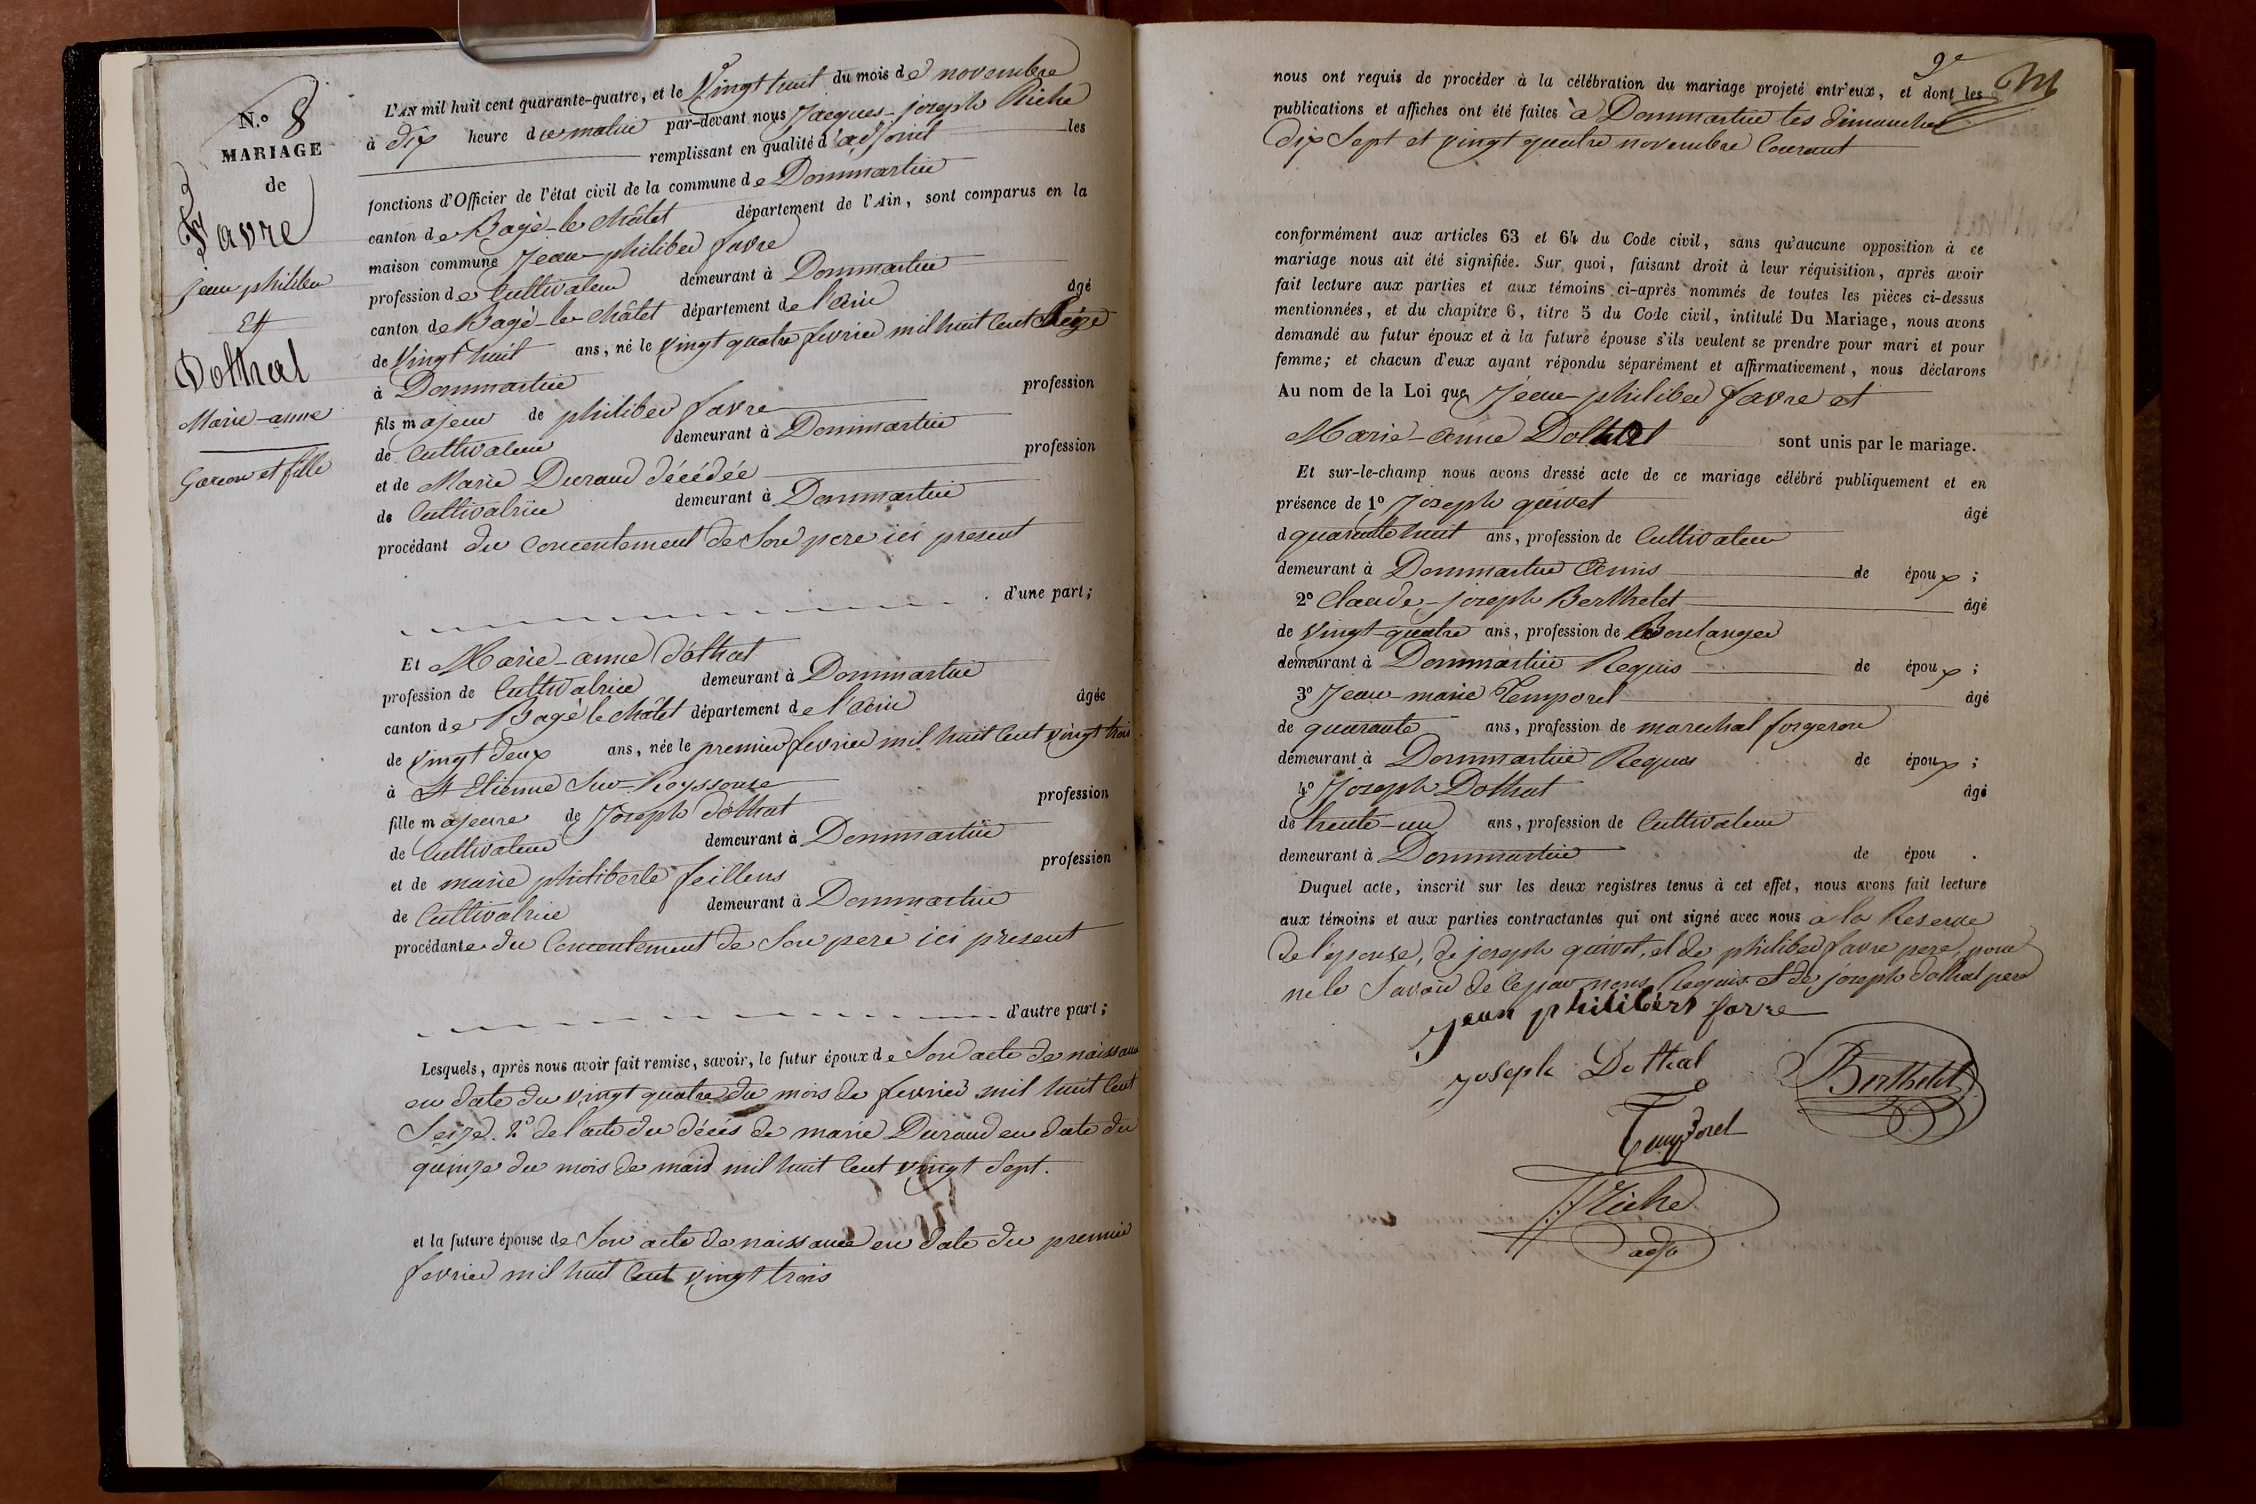 N.º 8
MARIAGE
de
Favre
jean philiber
Et
Dothal
Marie-anne
Garcon et fille
L'AN mil huit cent quarante-quatre, et le Vingt huit du mois de novembre
à dix heure du matin par-devant nous Jacques-joseph Riche
remplissant en qualité d'adjoint les
fonctions d'Officier de l'état civil de la commune de Dommartin
canton de Bagé-le-châtel département de l'Ain, sont comparus en la
maison commune Jean-philiber favre
profession de Cultivateur demeurant à Dommartin
canton de Bagé-le-châtel département de l'ain âgé
de Vingt huit ans, né le vingt quatre fevrier mil huit Cent Seize
à Dommartin
fils majeur de philiber favre profession
de Cultivateur demeurant à Dommartin
et de Marie Duraud décédée profession
de Cultivatrice demeurant à Dommartin
procédant du concentement de Son pere ici present
d'une part;
Et Marie-anne dothat
profession de Cultivatrice demeurant à Dommartin
canton de Bagé le châtel département de l'ain âgée
de vingt deux ans, née le premier fevrier mil huit Cent vingt trois
à St Etienne Sur-Reyssouze
fille majeure de Joseph dothat profession
de Cultivateur demeurant à Dommartin
et de marie philiberte feillens profession
de Cultivatrice demeurant à Dommartin
procédante du Concentement de Son pere ici present
d'autre part;
Lesquels, après nous avoir fait remise, savoir, le futur époux de Son acte de naissance
en date du vingt quatre du mois de fevrier mil huit Cent
Seize. 2º de l'acte du décès de marie Duraud en date du
quinze du mois de mais mil huit Cent vingt Sept.
et la future épouse de Son acte de naissance en date du premier
fevrier mil huit Cent vingt trois
9e
nous ont requis de procéder à la célébration du mariage projeté entr'eux, et dont les
publications et affiches ont été faites à Dommartin les dimanches
dix Sept et vingt quatre novembre Courant
conformément aux articles 63 et 64 du Code civil, sans qu'aucune opposition à ce
mariage nous ait été signifiée. Sur quoi, faisant droit à leur réquisition, après avoir
fait lecture aux parties et aux témoins ci-après nommés de toutes les pièces ci-dessus
mentionnées, et du chapitre 6, titre 5 du Code civil, intitulé Du Mariage, nous avons
demandé au futur époux et à la future épouse s'ils veulent se prendre pour mari et pour
femme; et chacun d'eux ayant répondu séparément et affirmativement, nous déclarons
Au nom de la Loi que Jean-philiber favre et
Marie-anne Dothal sont unis par le mariage.
Et sur-le-champ nous avons dressé acte de ce mariage célébré publiquement et en
présence de 1º Joseph guivet âgé
d quarante huit ans, profession de Cultivateur
demeurant à Dommartin Amis de époux;
2º Claude-joseph Berthelet âgé
de vingt-quatre ans, profession de Boulanger
demeurant à Dommartin Requis de époux;
3º Jean-marie Temporel âgé
de quarante ans, profession de marechal forgeron
demeurant à Dommartin Requis de époux;
4º Joseph Dothat âgé
de trente-un ans, profession de Cultivateur
demeurant à Dommartin de épou .
Duquel acte, inscrit sur les deux registres tenus à cet effet, nous avons fait lecture
aux témoins et aux parties contractantes qui ont signé avec nous a la Reserve
de l'épouse, de joseph guivet, et de philiber favre pere, pour
ne le Savoir de Ce par nous Requis & de joseph dothal pere
jean philibert favre
joseph Dothal
Berthelet
Temporel
JJ Riche
adjo